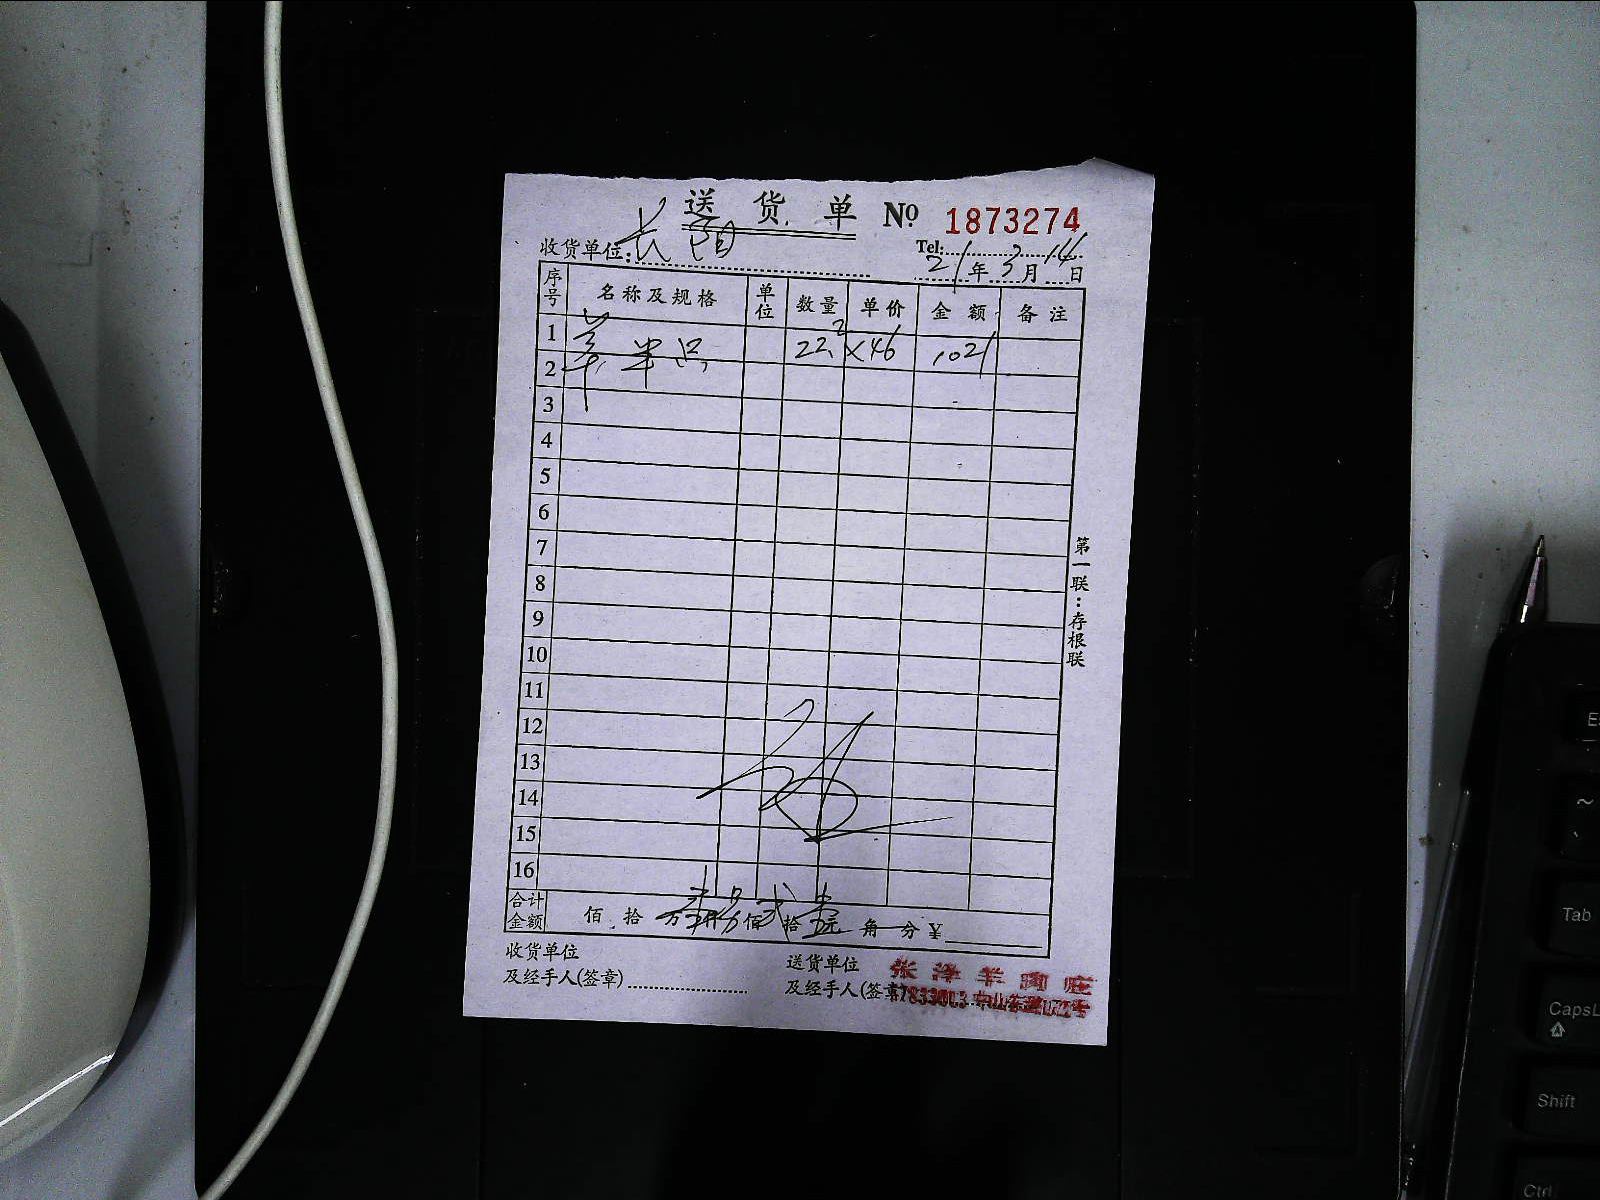 送货单 № 1873274
Tel:
收货单位: 长阳 21年3月14日
序号 名称及规格 单位 数量 单价 金额 备注
1 羊半只 22.2 ×46 1021
2
3
4
5
6
7
8
9
10
11
12
13
14
15
16
第一联：存根联
合计金额 佰 拾 万 壹仟 另佰 贰拾 壹元 角 分 ¥
收货单位 送货单位 张泽羊肉庄
及经手人(签章) 及经手人(签章)
Tab
CapsL
Shift
Ctrl